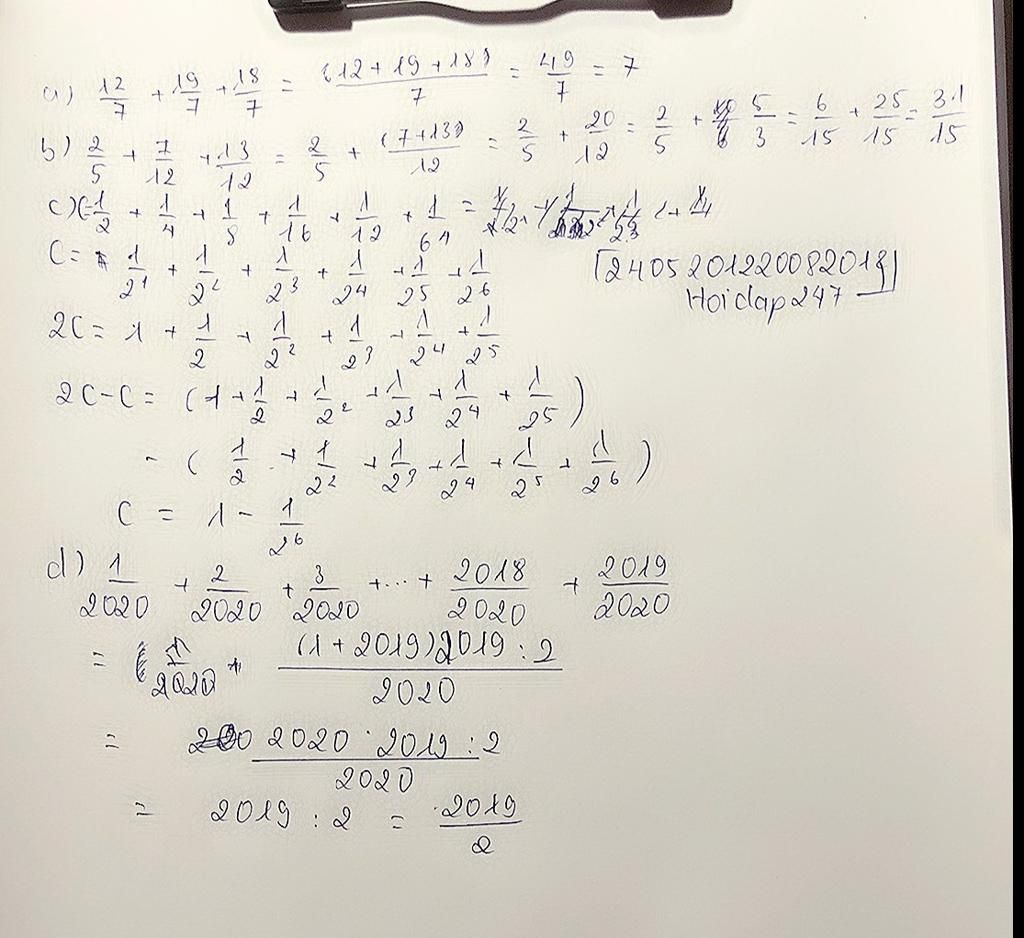 a) 12/7 + 19/7 + 18/7 = (12 + 19 + 18)/7 = 49/7 = 7
b) 2/5 + 7/12 + 13/12 = 2/5 + (7+13)/12 = 2/5 + 20/12 = 2/5 + 5/3 = 6/15 + 25/15 = 31/15
c) C = 1/2 + 1/4 + 1/8 + 1/16 + 1/12 + 1/64 =
C = 1/2^1 + 1/2^2 + 1/2^3 + 1/2^4 + 1/2^5 + 1/2^6
[2405201220082018]
Hoidap247
2C = 1 + 1/2 + 1/2^2 + 1/2^3 + 1/2^4 + 1/2^5
2C - C = (1 + 1/2 + 1/2^2 + 1/2^3 + 1/2^4 + 1/2^5)
- (1/2 + 1/2^2 + 1/2^3 + 1/2^4 + 1/2^5 + 1/2^6)
C = 1 - 1/2^6
d) 1/2020 + 2/2020 + 3/2020 + ... + 2018/2020 + 2019/2020
= (1 + 2019) 2019 : 2 / 2020
= 2020 . 2019 : 2 / 2020
= 2019 : 2 = 2019/2